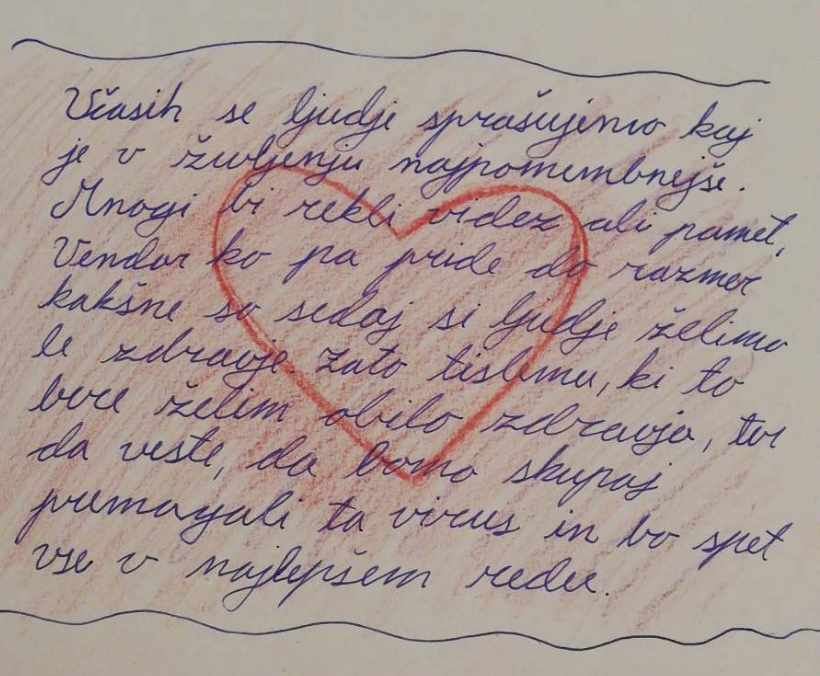 Včasih se ljudje sprašujemo kaj
je v življenju najpomembnejše.
Mnogi bi rekli videz ali pamet,
Vendar ko pa pride do razmer
kakšne so sedaj si ljudje želimo
le zdravje. Zato tistemu, ki to
bere želim obilo zdravja, ter
da veste, da bomo skupaj
premagali ta virus in bo spet
vse v najlepšem redu.